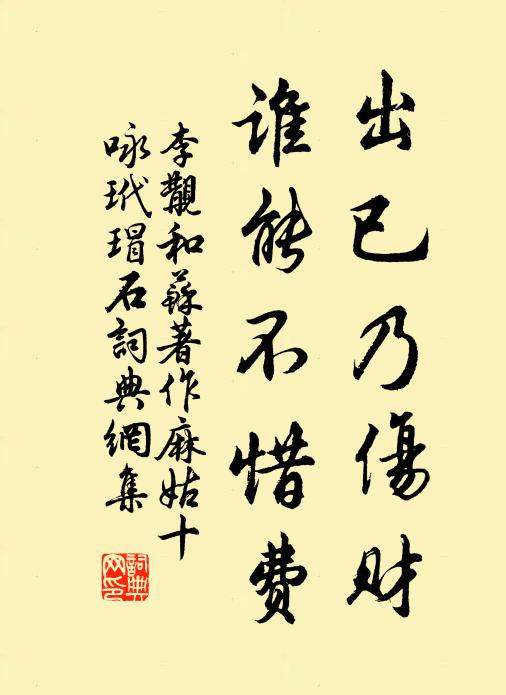 出已乃傷財
誰能不惜費
李觀和蘇著作麻姑十
咏玳瑁石詞典網集
詞典
网印